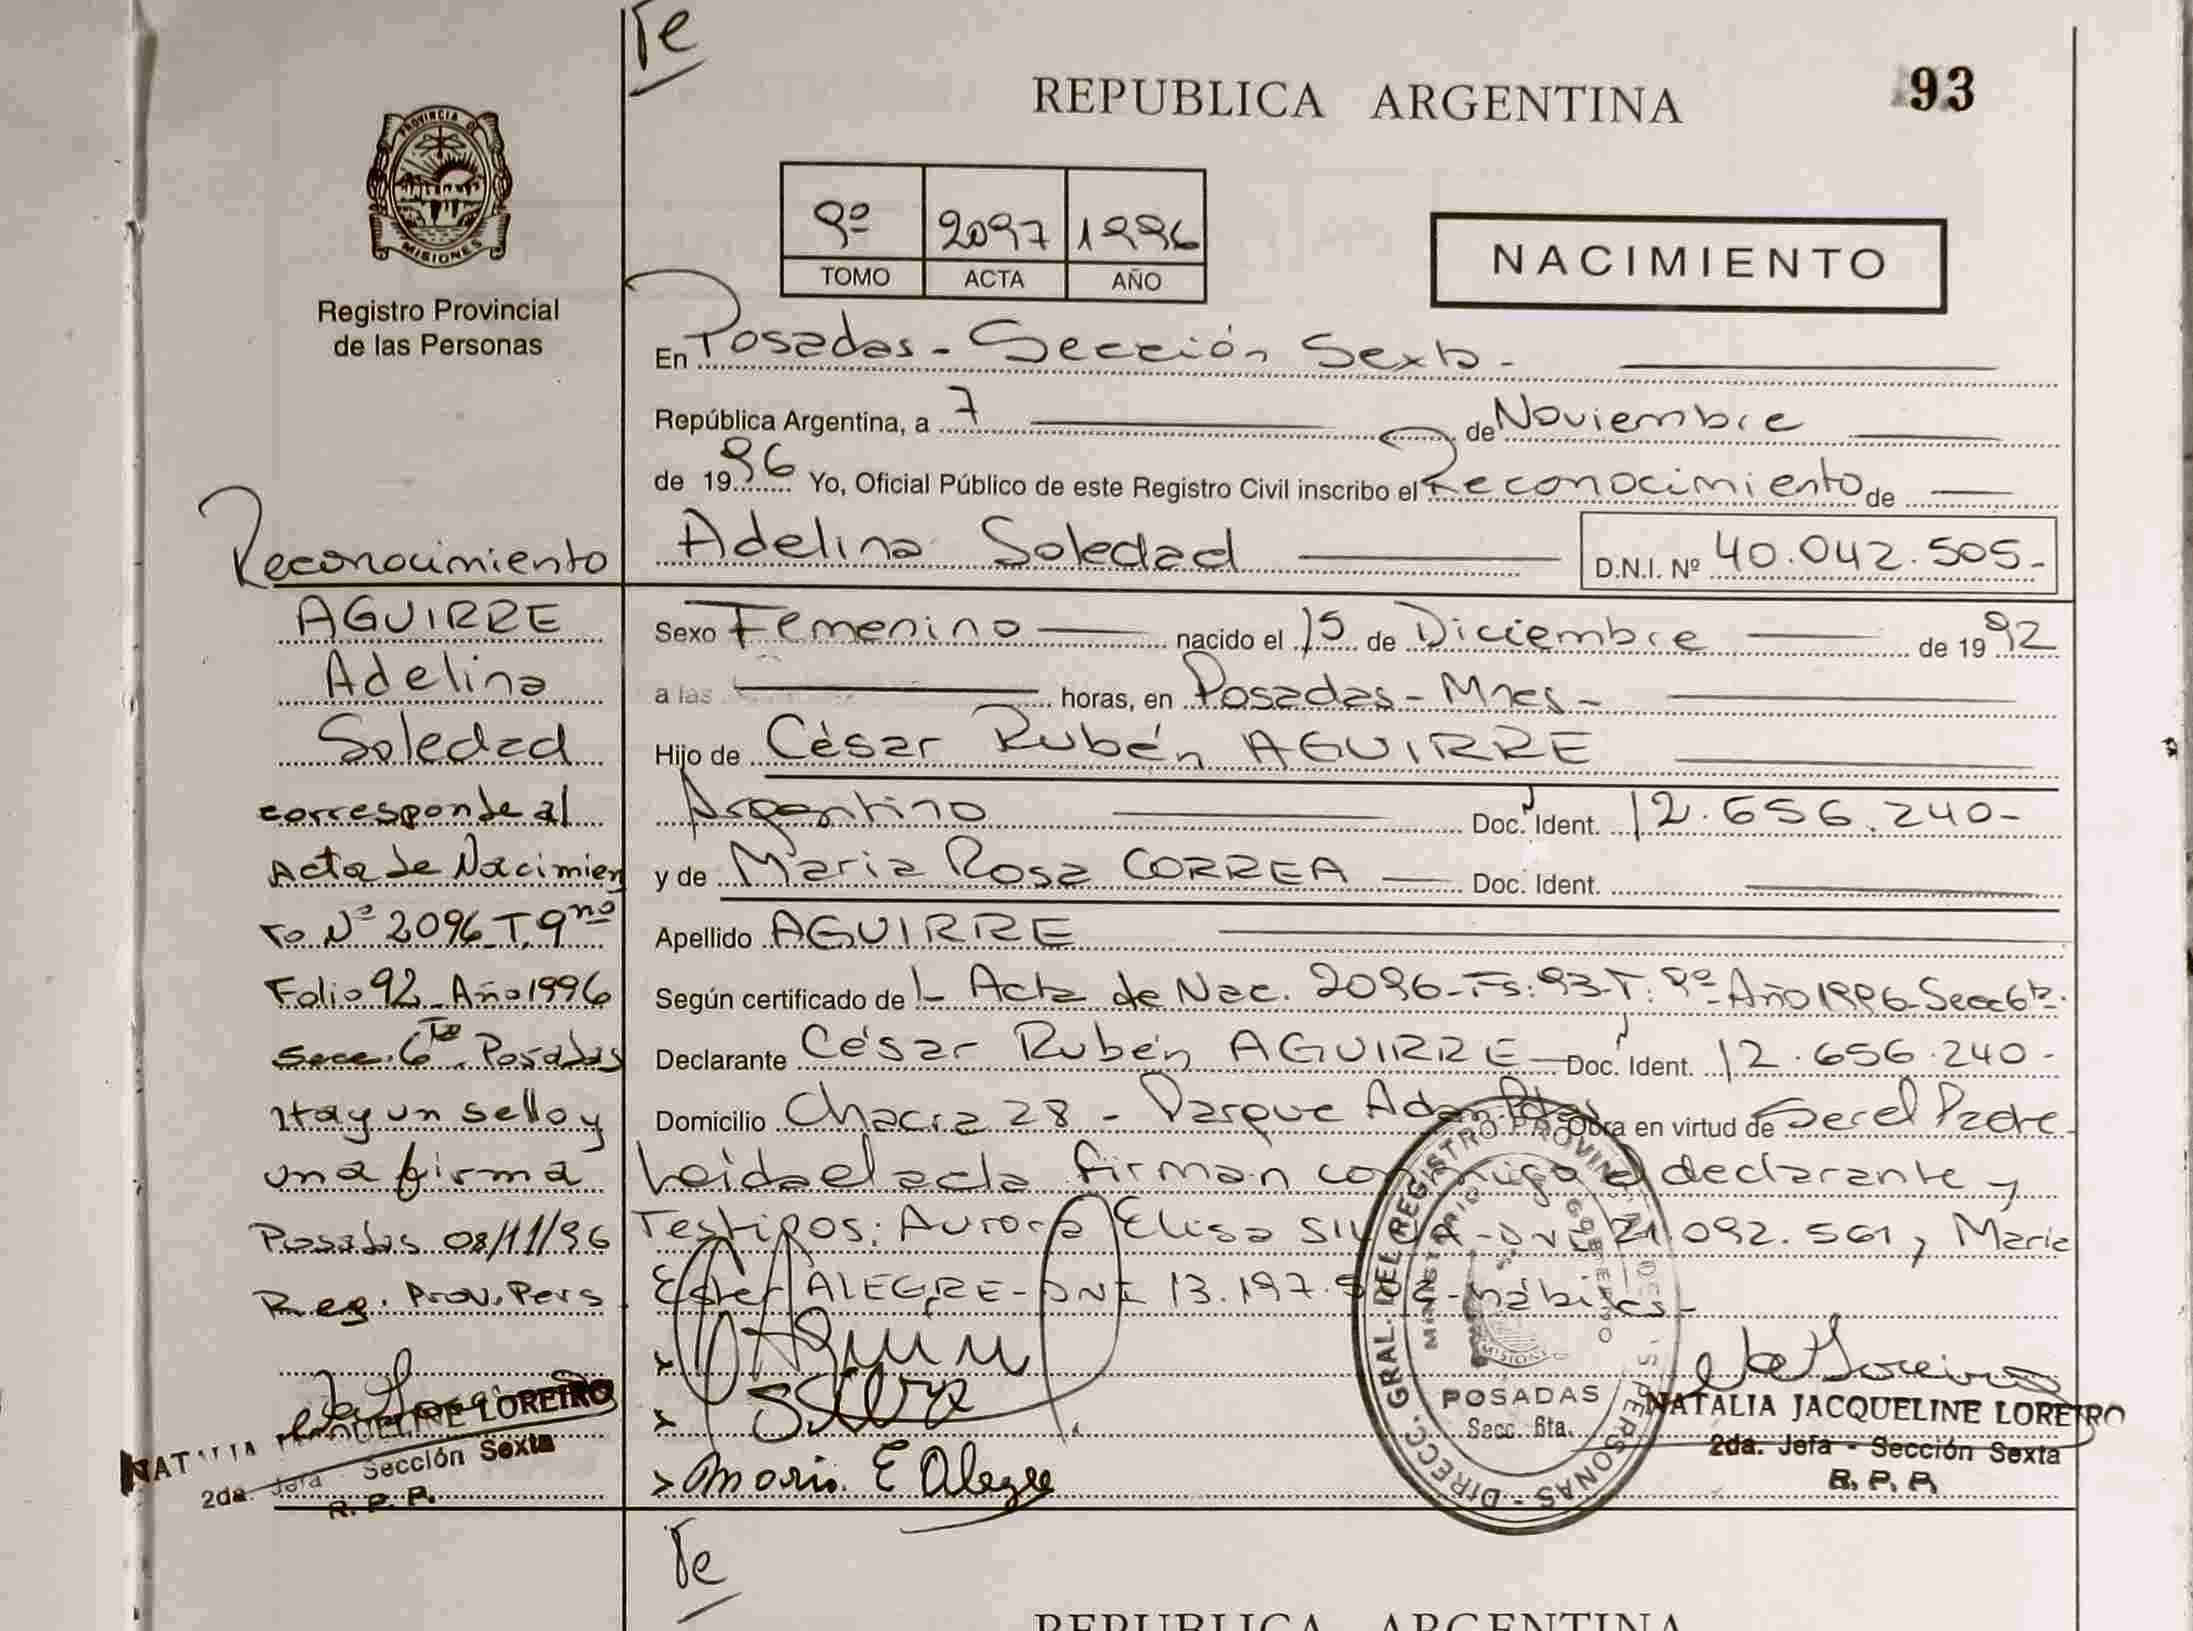 Te
REPUBLICA ARGENTINA
93
PROVINCIA DE
MISIONES
Registro Provincial
de las Personas
9º 2097 1996
TOMO ACTA AÑO
NACIMIENTO
En Posadas - Sección Sexta -
República Argentina, a 7 de Noviembre
de 1996 Yo, Oficial Público de este Registro Civil inscribo el Reconocimiento de
Adelina Soledad D.N.I. Nº 40.042.505-
Sexo Femenino nacido el 15 de Diciembre de 1992
a las horas, en Posadas - Mnes -
Hijo de César Rubén AGUIRRE
Argentino Doc. Ident. 12.656.240-
y de Maria Rosa CORREA Doc. Ident.
Apellido AGUIRRE
Según certificado de l- Acta de Nac. 2096-Fs: 93-T: 9º-Año 1996-Secc 6ta.
Declarante César Rubén AGUIRRE Doc. Ident. 12.656.240-
Domicilio Chacra 28 - Parque Adam Obra en virtud de Ser el Padre
Leida el acta firman conmigo el declarante y
Testigos: Aurora Elisa SILVA-DNI 21.092.561, Maria
Ester ALEGRE-DNI 13.197. -hábiles-
Reconocimiento
AGUIRRE
Adelina
Soledad
corresponde al
Acta de Nacimien
to Nº 2096 T. 9no
Folio 92 Año 1996
Secc. 6ta Posadas
Hay un sello y
una firma
Posadas 08/11/96
Reg. Prov. Pers
NATALIA JACQUELINE LOREIRO
2da. Jefa - Sección Sexta
R. P. P.
Silva
Maria E Alegre
DIRECC. GRAL. DEL REGISTRO PROVINCIAL DE LAS PERSONAS
MINISTERIO GOBIERNO
MISIONES
POSADAS
Secc. 6ta.
NATALIA JACQUELINE LOREIRO
2da. Jefa - Sección Sexta
R. P. P.
Te
REPUBLICA ARGENTINA